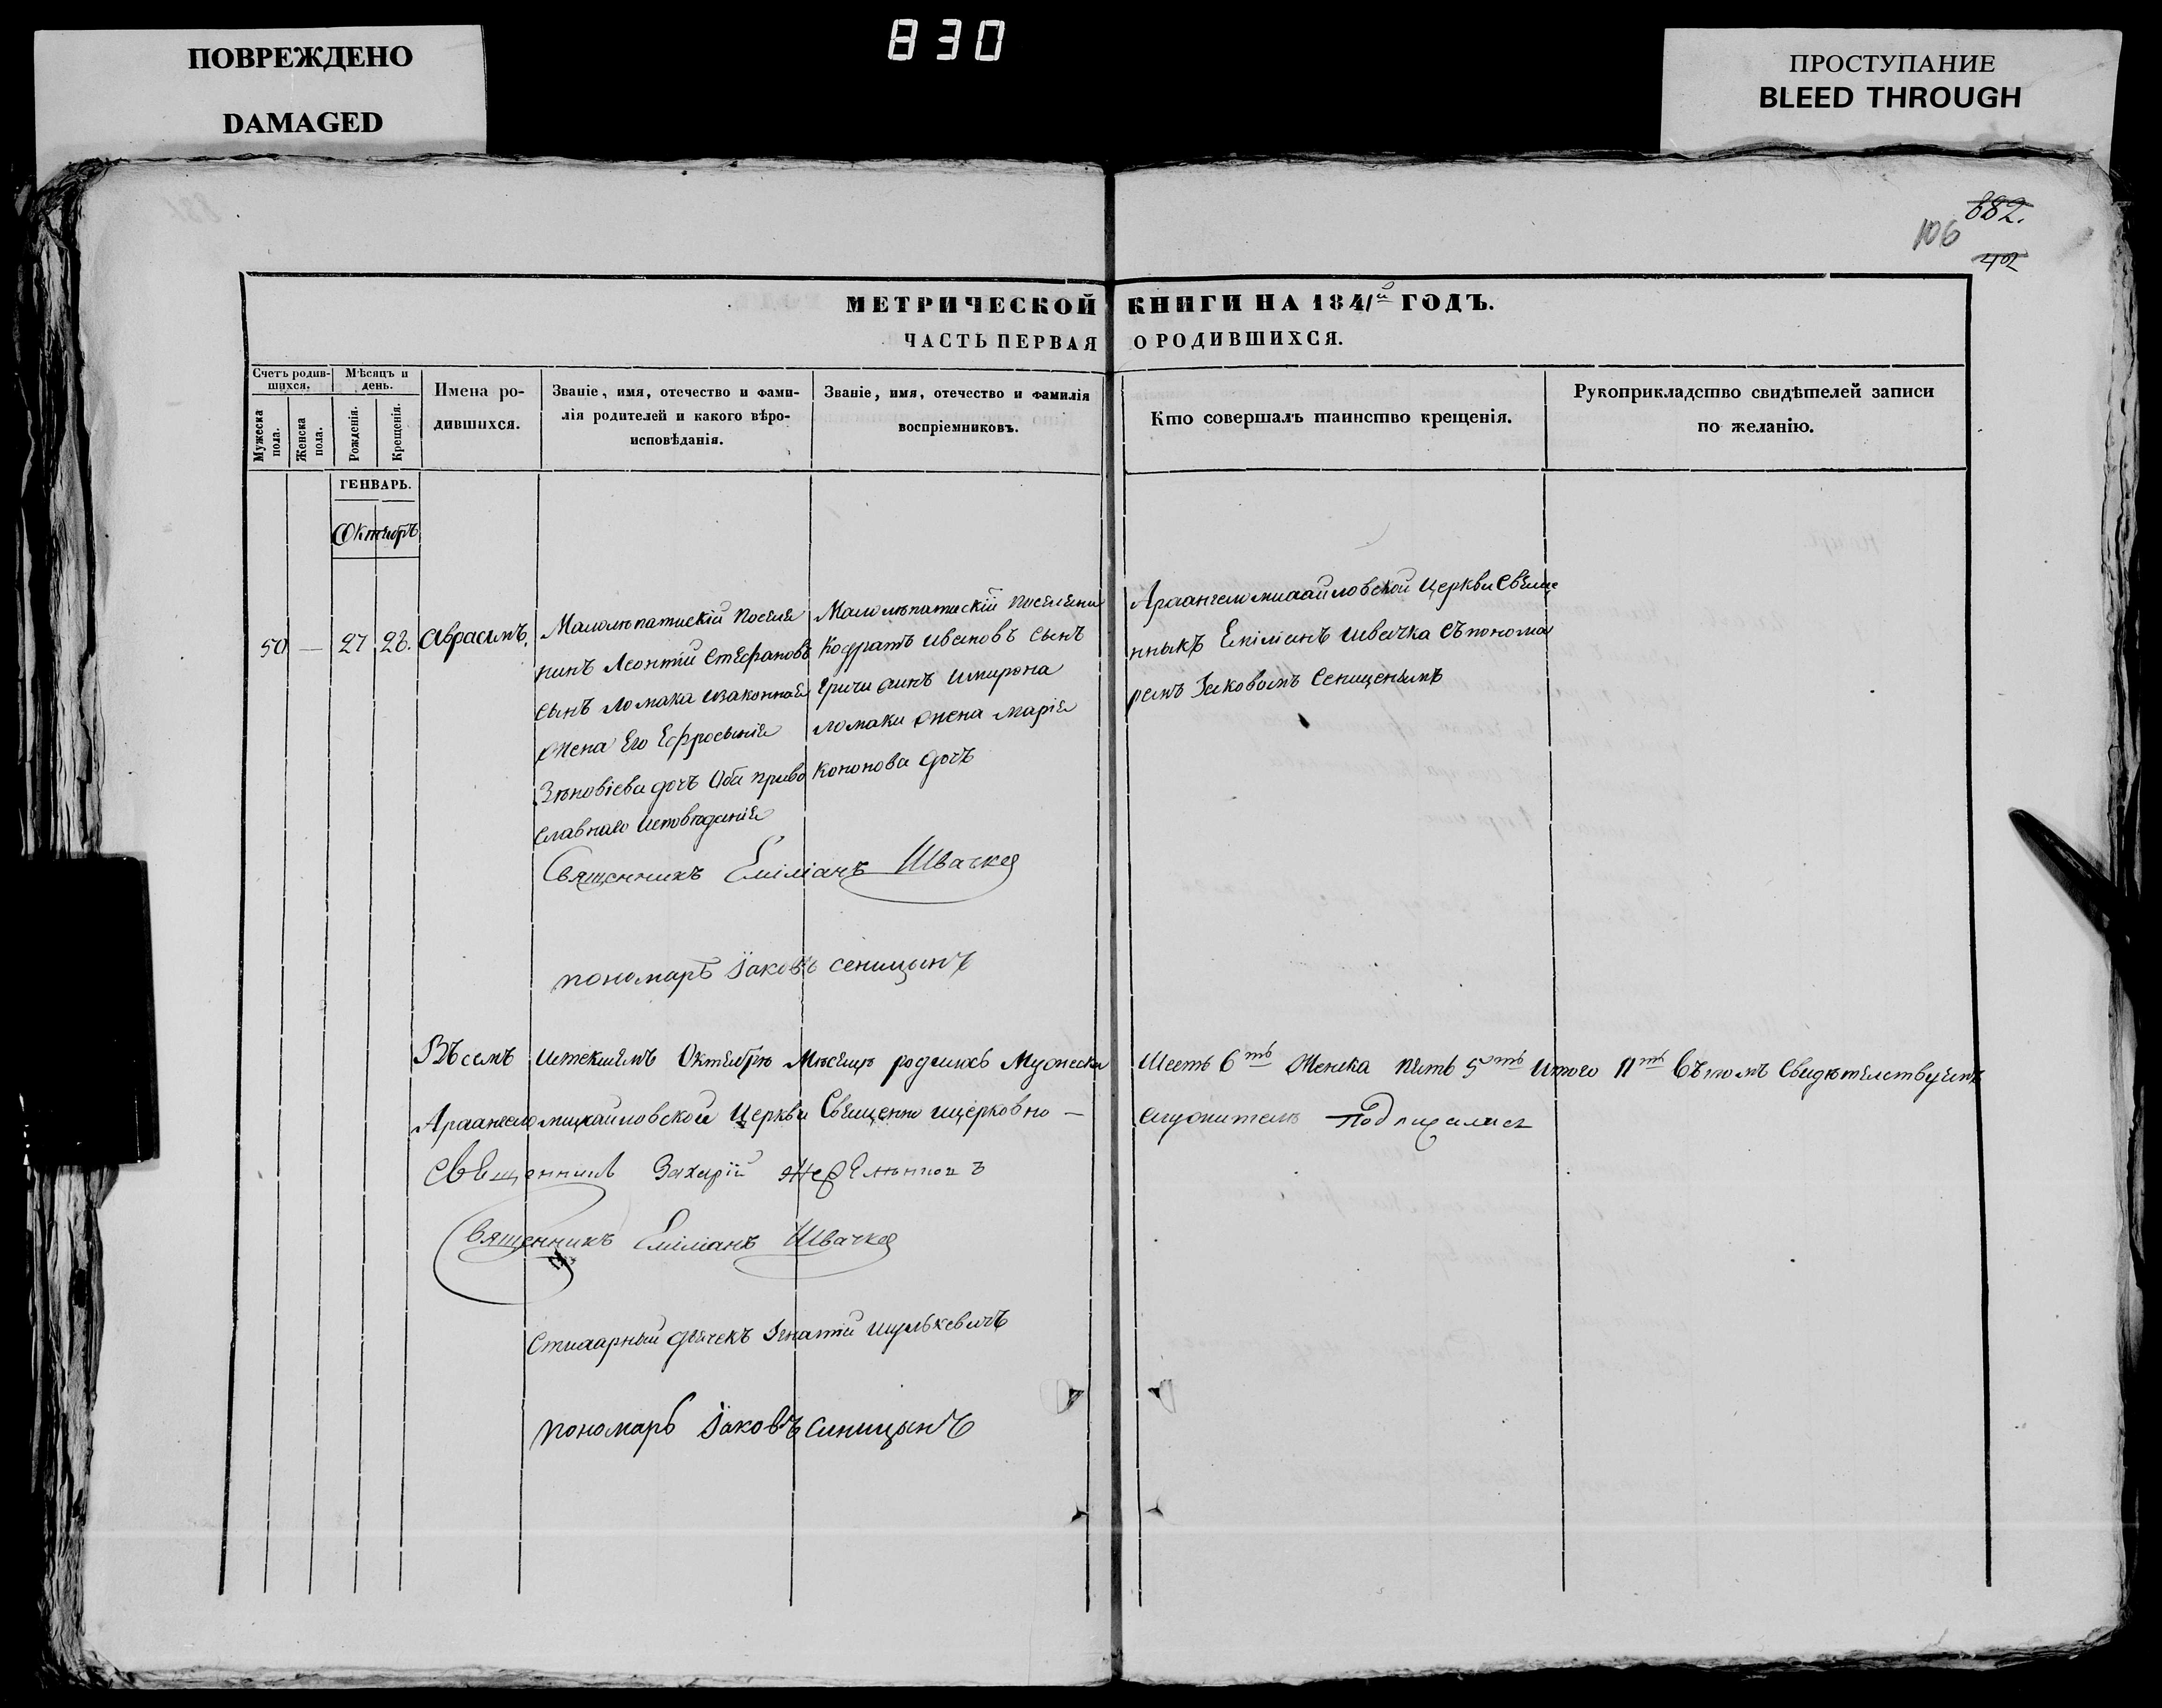 830
ПОВРЕЖДЕНО
DAMAGED
ПРОСТУПАНИЕ
BLEED THROUGH
882.
106
402
МЕТРИЧЕСКОЙ КНИГИ НА 1841й ГОДЪ.
ЧАСТЬ ПЕРВАЯ О РОДИВШИХСЯ.
Счетъ родив-
шихся.
Мужеска
пола.
Женска
пола.
Мѣсяцъ и
день.
Рожденія.
Крещенія.
Имена ро-
дившихся.
Званіе, имя, отечество и фами-
лія родителей и какого вѣро-
исповѣданія.
Званіе, имя, отечество и фамилія
воспріемниковъ.
Кто совершалъ таинство крещенія.
Рукоприкладство свидѣтелей записи
по желанію.
ГЕНВАРЬ.
Октябръ
50 — 27 28. Аврамъ.
поселя
нинъ Леонтій Стефановъ
сынъ Ломака изаконная
жена Его Ефросинія
Зѣновіева дочъ Оба право
славнаго исповѣданія
поселяни
Кодратъ Ивановъ сынъ
имирона
ломаки жена Марія
Кононова дочъ
Архангеломихайловской Церкви Свяще
нникъ Еміліанъ Швачка съ понома
ремъ Іаковомъ Сеницынымъ
Священникъ Еміліанъ Швачка
пономарь Іаковъ сеницынъ
Въ семъ истекшемъ Октябрѣ Мѣсяцѣ родилось Мужеска Шесть 6ть Женска пять 5ть Итого 11ть Въ томъ Свидѣтелствуемъ
Архангеломихайловской Церкви Священно ицерковно — служители Подписались
Священникъ Захарій
Священникъ Еміліанъ Швачка
Стихарный дьячекъ Игнатій Шулькевичъ
пономарь Іаковъ Синицынъ